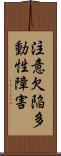 注意欠陥多
動性障害